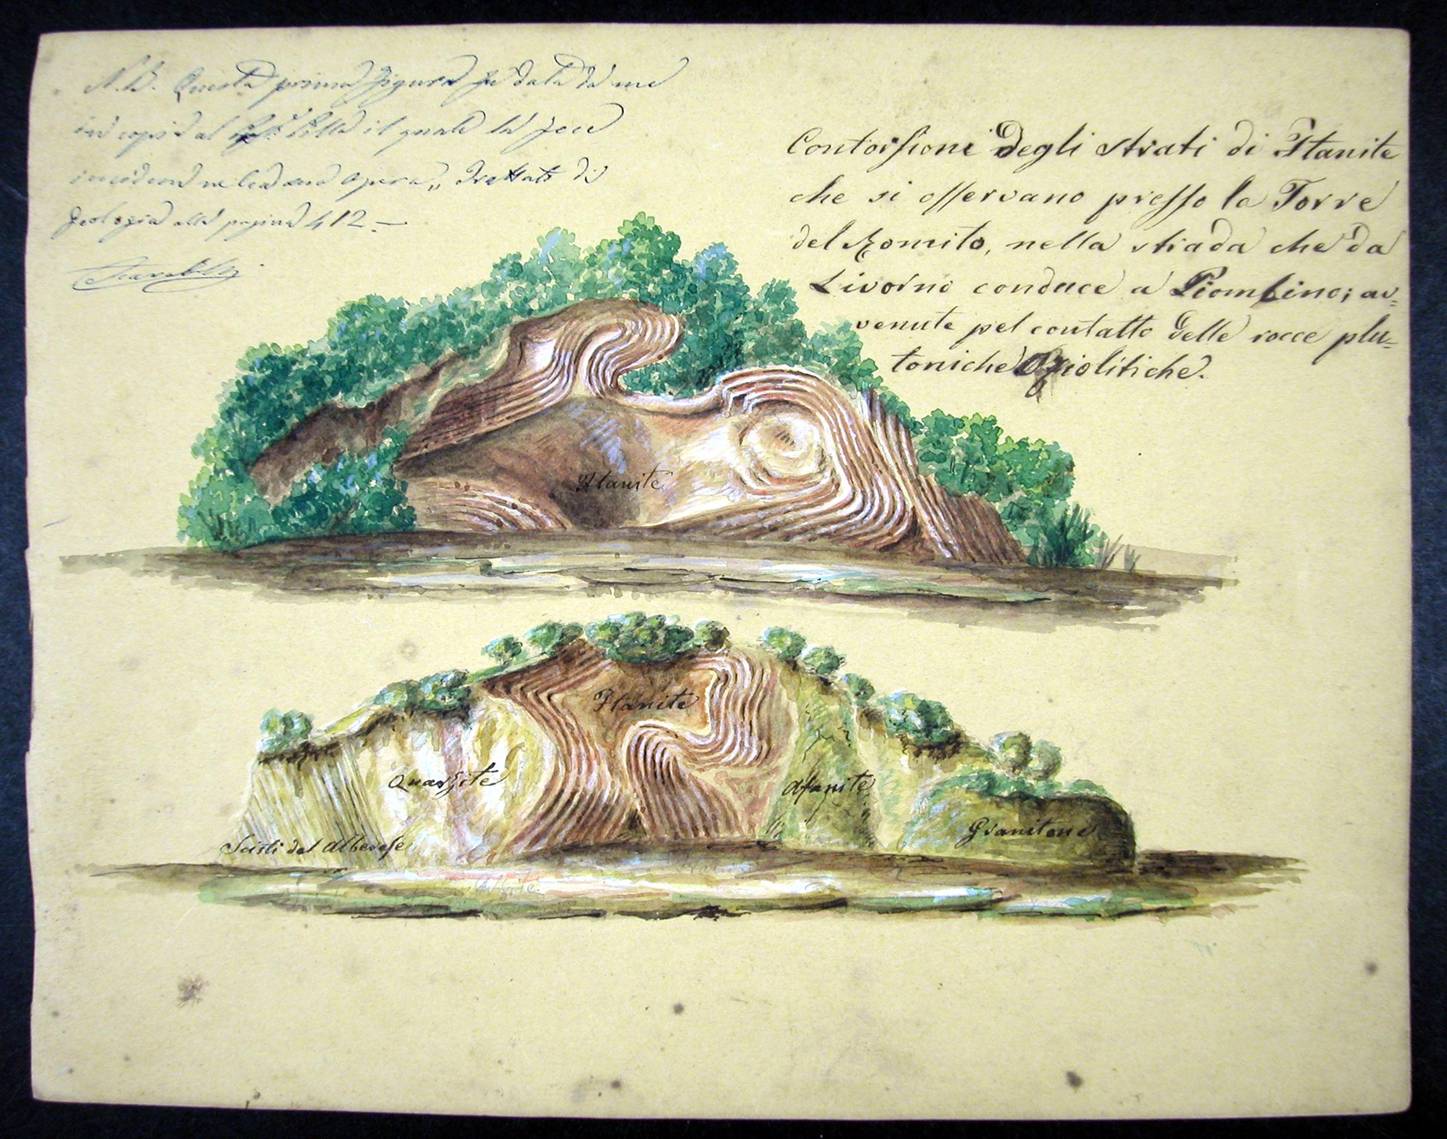 N.B. Questa prima figura fu data da me
in copia al Sig.r Collegno il quale la fece
incidere nella sua opera „ Trattato di
Geologia alla pagina 412. —
Scarabelli
Contorsioni degli strati di Ftanite
che si osservano presso la Torre
del Romito, nella strada che da
Livorno conduce a Piombino; av=
venute pel contatto delle rocce plu=
toniche Ofiolitiche.
Ftanite
Ftanite
Quarzite
Afanite
Granitone
Scisti del Alberese